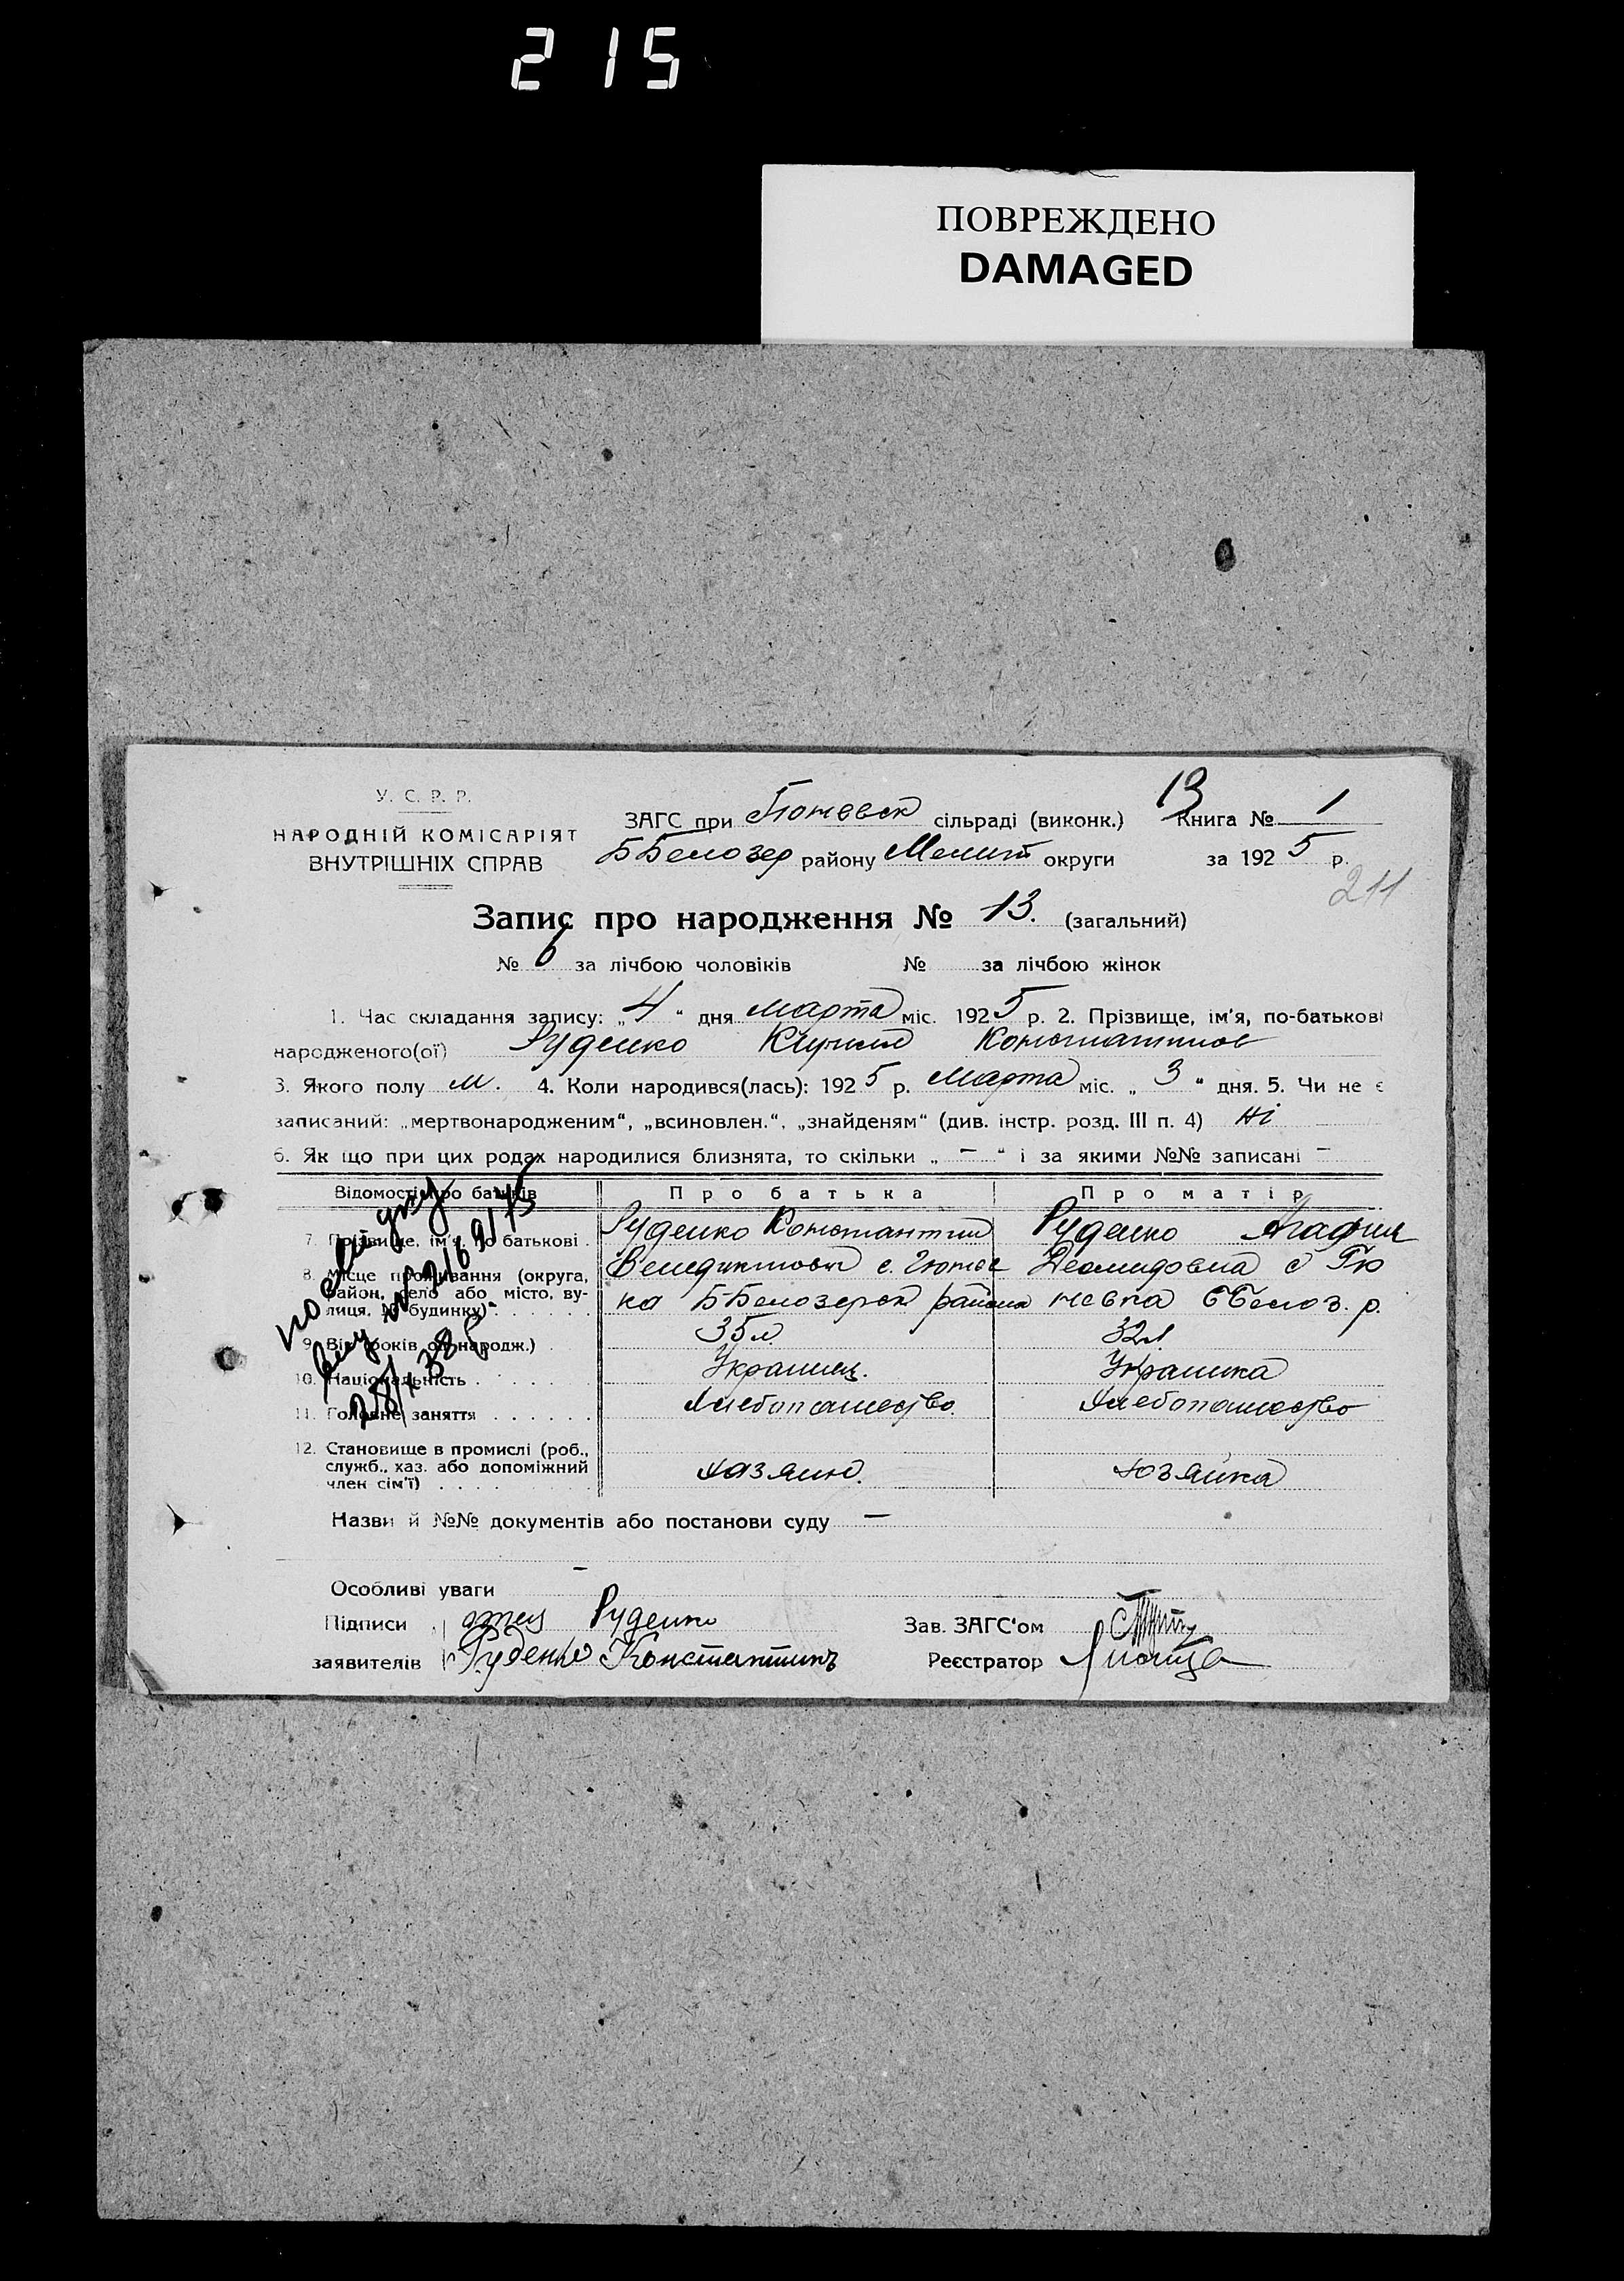 215
ПОВРЕЖДЕНО
DAMAGED
У. С. Р. Р.
НАРОДНІЙ КОМІСАРІЯТ
ВНУТРІШНІХ СПРАВ
ЗАГС при сільраді (виконк.) 13 Книга № 1
ББелозер району Мелит округи за 1925 р.
211
Запис про народження № 13. (загальний)
№ 6 за лічбою чоловіків № за лічбою жінок
1. Час складання запису: „4" дня марта міс. 1925 р. 2. Прізвище, ім'я, по-батькові
народженого(ої) Руденко Кирилл Константинов
3. Якого полу м. 4. Коли народився(лась): 1925 р. Марта міс. „3" дня. 5. Чи не є
записаний: „мертвонародженим", „всиновлен.", „знайденям" (див. інстр. розд. III п. 4) Ні
6. Як що при цих родах народилися близнята, то скільки „ — " і за якими №№ записані —
Відомості про батьків Про батька Про матір
7. Прізвище, ім'я, по батькові Руденко Константин Руденко Агафия
8. Місце проживання (округа, Венедиктович с. Деомидовна с Гю
район, село або місто, ву-
лиця, № будинку) ка Б-Белозерск района невка ББелоз. р.
9. Вік (років од народж.) 35 л 32 л
10. Національність Украинец. Украинка
11. Головне заняття Хлебопашество. Хлебопашество
12. Становище в промислі (роб.,
служб., хаз. або допоміжний хазяин. хозяйка
член сім'ї)
Назви й №№ документів або постанови суду —
Особливі уваги –
Підписи отец Руденко Зав. ЗАГС'ом
заявителів Руденко Константинъ Реєстратор